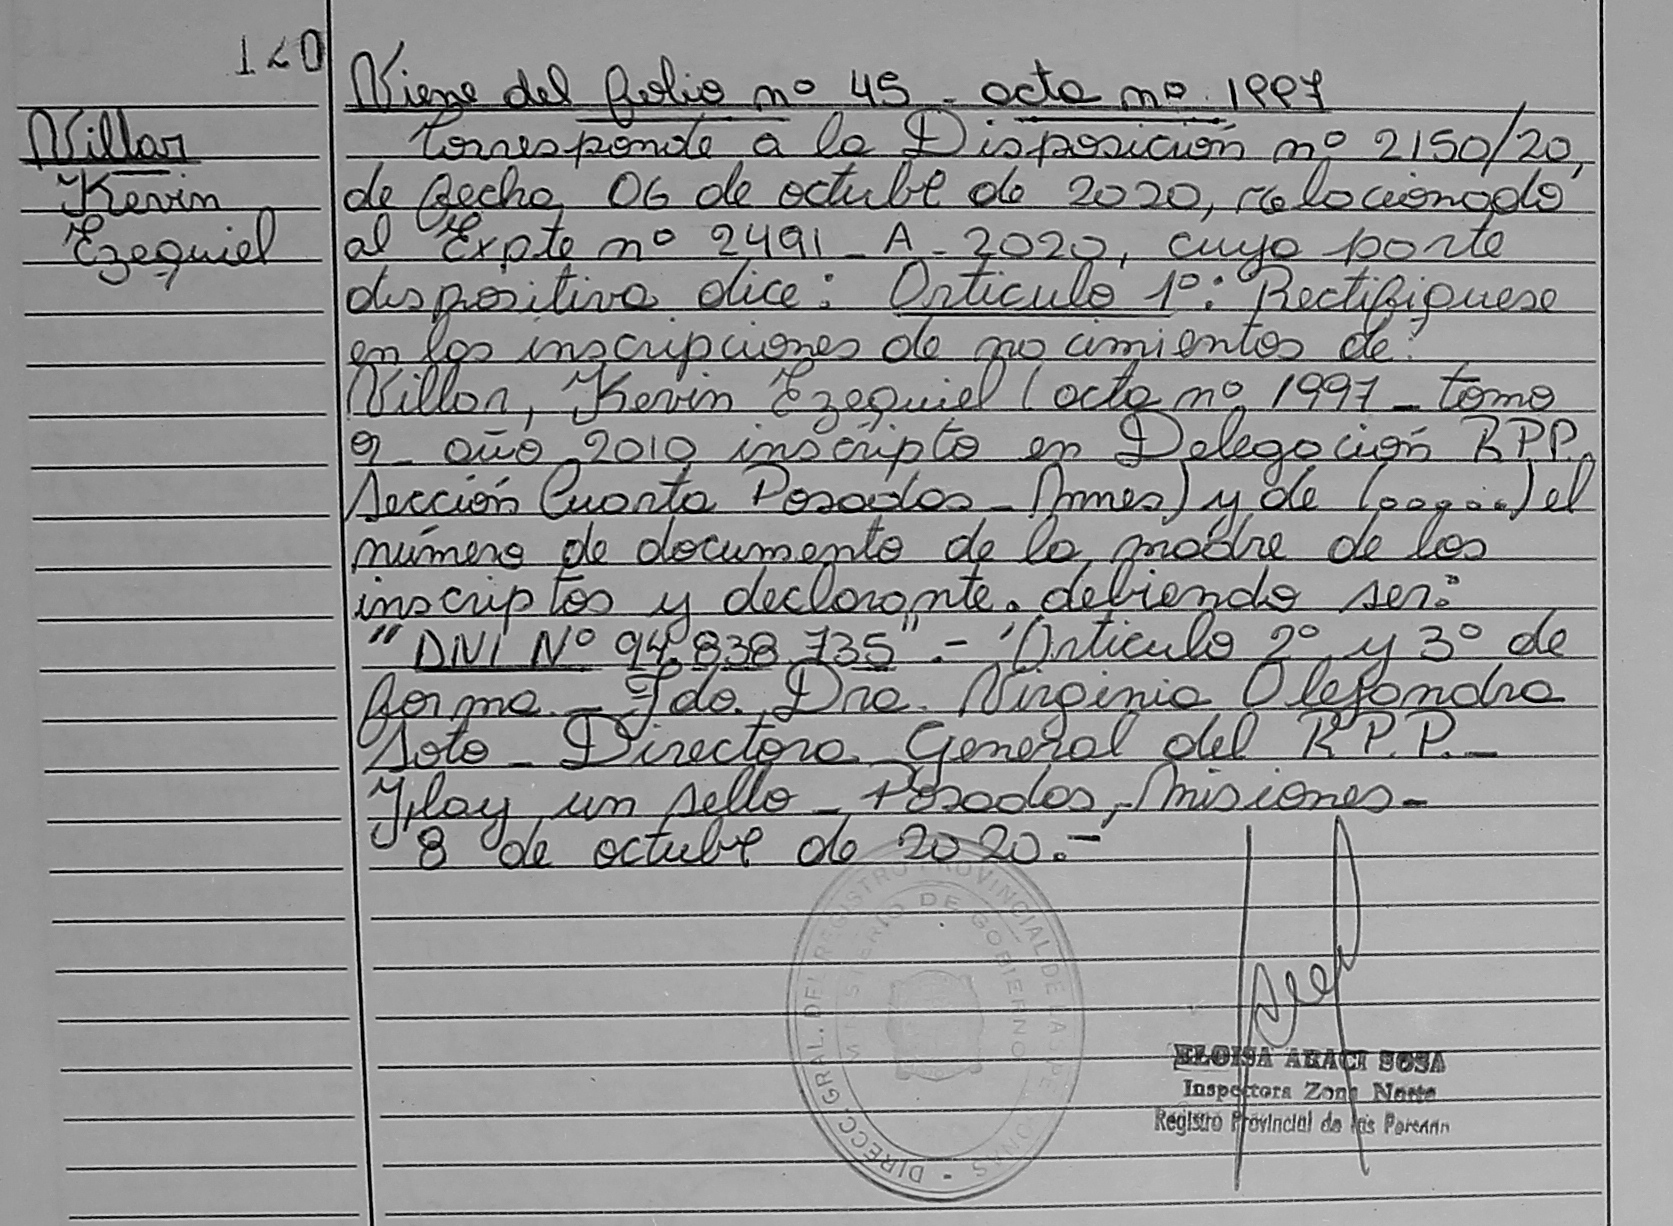 120
Viene del folio nº 45 - acta nº 1997
Villar
Kevin
Ezequiel
Corresponde a la Disposición nº 2150/20,
de fecha 06 de octubre de 2020, relacionado
al Expte nº 2491 - A - 2020, cuya parte
dispositiva dice: Articulo 1º: Rectifiquese
en las inscripciones de nacimientos de:
Villar, Kevin Ezequiel (acta nº 1997 - tomo
9 - año 2010 inscripto en Delegación R.P.P.
Sección Cuarta Posadas - Mnes) y de (......) el
número de documento de la madre de los
inscriptos y declarante. debiendo ser:
"DNI Nº 94.838.735".- Articulo 2º y 3º de
forma - Fdo. Dra. Virginia Alejandra
Soto - Directora General del R.P.P. -
Hay un sello - Posadas, Misiones -
8 de octubre de 2020.-
DIRECC. GRAL. DEL REGISTRO PROVINCIAL DE LAS PERSONAS -
MINISTERIO DE GOBIERNO
ELOISA ARACI SOSA
Inspectora Zona Norte
Registro Provincial de las Personas